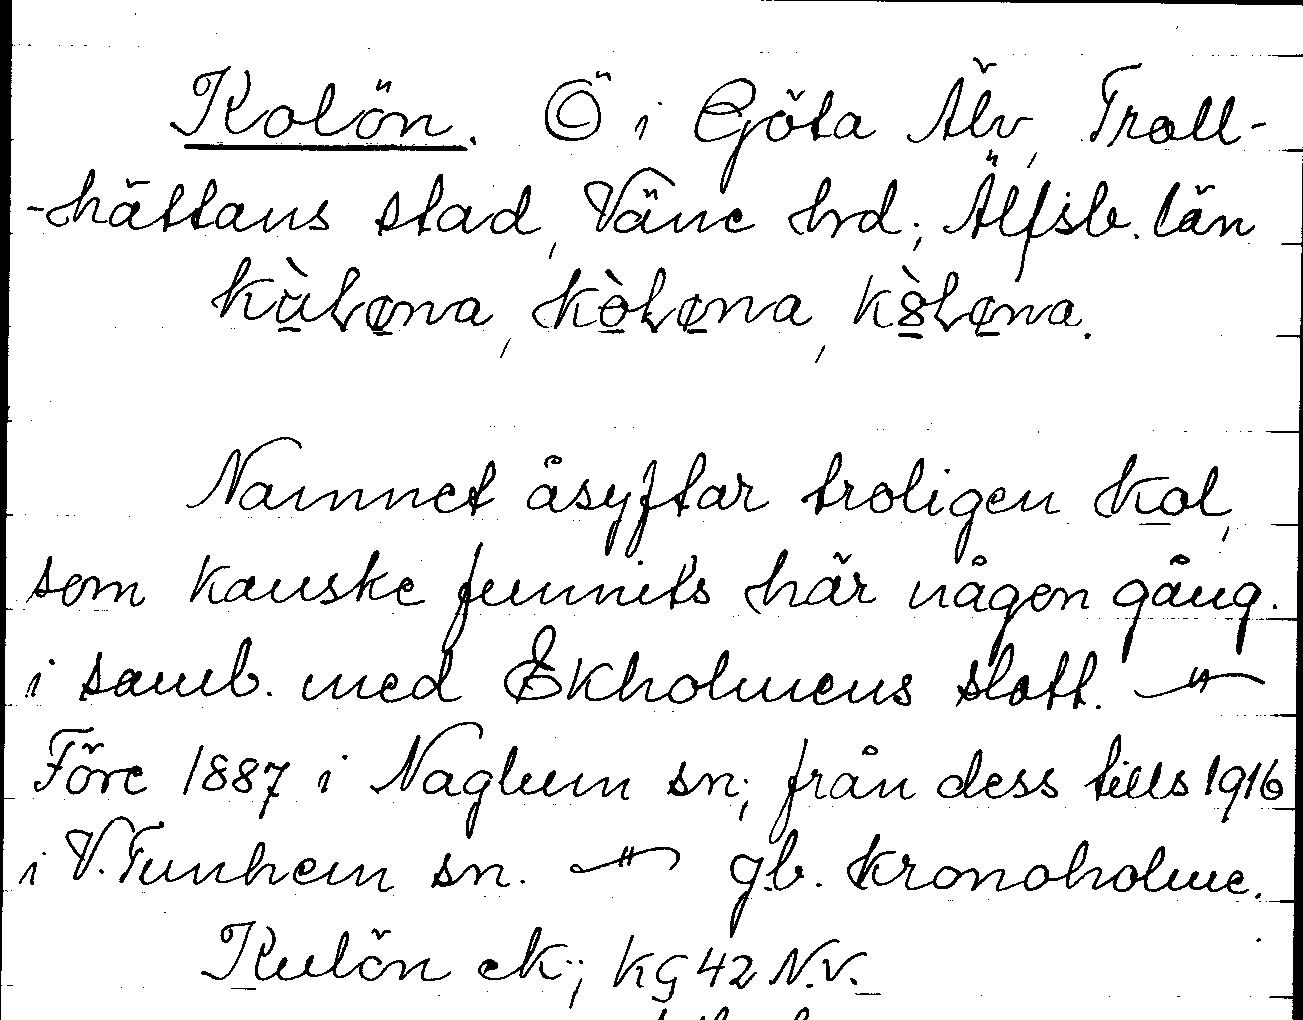 Kolön. Ö i Göta Älv, Troll-
-hättans stad, Väne hrd; Älfsb. län
kùløna, kòløna, k8̀løna.
Namnet åsyftar troligen kol,
som kanske funnits här någon gång.
i samb. med Ekholmens slott. —"—
Före 1887 i Naglum sn; från dess tills 1916
i V. Tunhem sn. —"— gb. Kronoholme.
Kulön ek; KG 42 N.V.